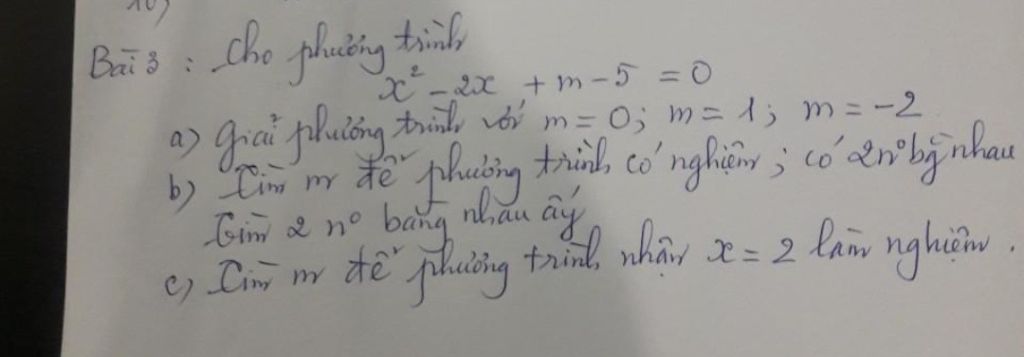 10)
Bài 3 : Cho phương trình
x² - 2x + m - 5 = 0
a) Giải phương trình với m = 0; m = 1; m = -2
b) Tìm m để phương trình có nghiệm; có 2 n° bg nhau
Tìm 2 n° bằng nhau ấy
c) Tìm m để phương trình nhận x = 2 làm nghiệm.